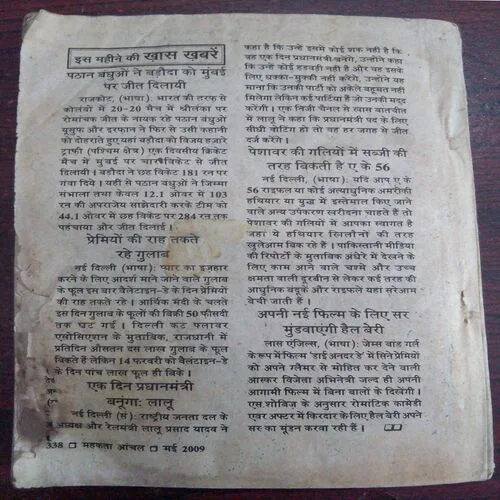 इस महीने की खास खबरें
पठान बंधुओं ने बड़ौदा को मुंबई
पर जीत दिलायी
राजकोट, (भाषा): भारत की तरफ से
कोलंबो में 20-20 मैच में श्रीलंका पर
रोमांचक जीत के नायक रहे पठान बंधुओं
युसुफ और इरफान ने फिर से उसी कहानी
को दोहराते हुए यहां बड़ौदा को विजय हजारे
ट्राफी (पश्चिम क्षेत्र) एक दिवसीय क्रिकेट
मैच में मुंबई पर चार विकेट से जीत
दिलायी। बड़ौदा ने छह विकेट 181 रन पर
गंवा दिये। यहीं से पठान बंधुओं ने जिम्मा
संभाला तथा केवल 12.1 ओवर में 103
रन की अपराजेय साझेदारी करके टीम को
44.1 ओवर में छह विकेट पर 284 रन तक
पहुंचाया और जीत दिलाई।
प्रेमियों की राह तकते
रहे गुलाब
नई दिल्ली, (भाषा): प्यार का इजहार
करने के लिए आदर्श माने जाने वाले गुलाब
के फूल इस बार वैलेंटाइन-डे के दिन प्रेमियों
की राह तकते रहे। आर्थिक मंदी के चलते
इस दिन गुलाब के फूलों की बिक्री 50 फीसदी
तक घट गई। दिल्ली कट फ्लावर
एसोसिएशन के मुताबिक, राजधानी में
प्रतिदिन औसतन दस लाख गुलाब के फूल
बिकते हैं लेकिन 14 फरवरी को वैलेंटाइन-डे
के दिन पांच लाख फूल ही बिके।
एक दिन प्रधानमंत्री
बनूंगा: लालू
नई दिल्ली (सं): राष्ट्रीय जनता दल के
अध्यक्ष और रेलमंत्री लालू प्रसाद यादव ने
338 □ महकता आंचल □ मई 2009
कहा है कि उन्हें इसमें कोई शक नहीं है कि
वह एक दिन प्रधानमंत्री बनेंगे, उन्होंने कहा
कि उन्हें कोई हड़बड़ी नहीं है और वह इसके
लिए धक्का-मुक्की नहीं करेंगे, उन्होंने यह
माना कि उनकी पार्टी को अकेले बहुमत नहीं
मिलेगा लेकिन कई पार्टियां हैं जो उनकी मदद
करेंगी। एक निजी चैनल से खास बातचीत
में लालू ने कहा कि प्रधानमंत्री पद के लिए
सीधी वोटिंग हो तो वह हर जगह से जीत
दर्ज करेंगे।
पेशावर की गलियों में सब्जी की
तरह बिकती है ए के 56
नई दिल्ली, (भाषा): यदि आप ए के
56 राइफल या कोई अत्याधुनिक अमरीकी
हथियार या युद्ध में इस्तेमाल किए जाने
वाले अन्य उपकरण खरीदना चाहते हैं तो
पेशावर की गलियों में आपका स्वागत है
जहां ये हथियार खिलौनों की तरह
खुलेआम बिक रहे हैं। पाकिस्तानी मीडिया
की रिपोर्टों के मुताबिक अंधेरे में देखने के
लिए काम आने वाले चश्मे और उच्च
क्षमता वाली दूरबीन से लेकर कई तरह की
आधुनिक बंदूकें और राइफलें यहां सरेआम
बेची जाती हैं।
अपनी नई फिल्म के लिए सर
मुंडवाएंगी हैल बेरी
लास एंजिल्स, (भाषा): जेम्स बांड गर्ल
के रूप में फिल्म 'डाई अनदर डे' में सिने प्रेमियों
को अपने ग्लैमर से मोहित कर देने वाली
आस्कर विजेता अभिनेत्री जल्द ही अपनी
आगामी फिल्म में बिना बालों के दिखेंगी।
एस.शोबिज के अनुसार रोमांटिक कामेडी
एवर अफ्टर में किरदार के लिए हैल बेरी अपने
सर का मुंडन करवा रही हैं। □□